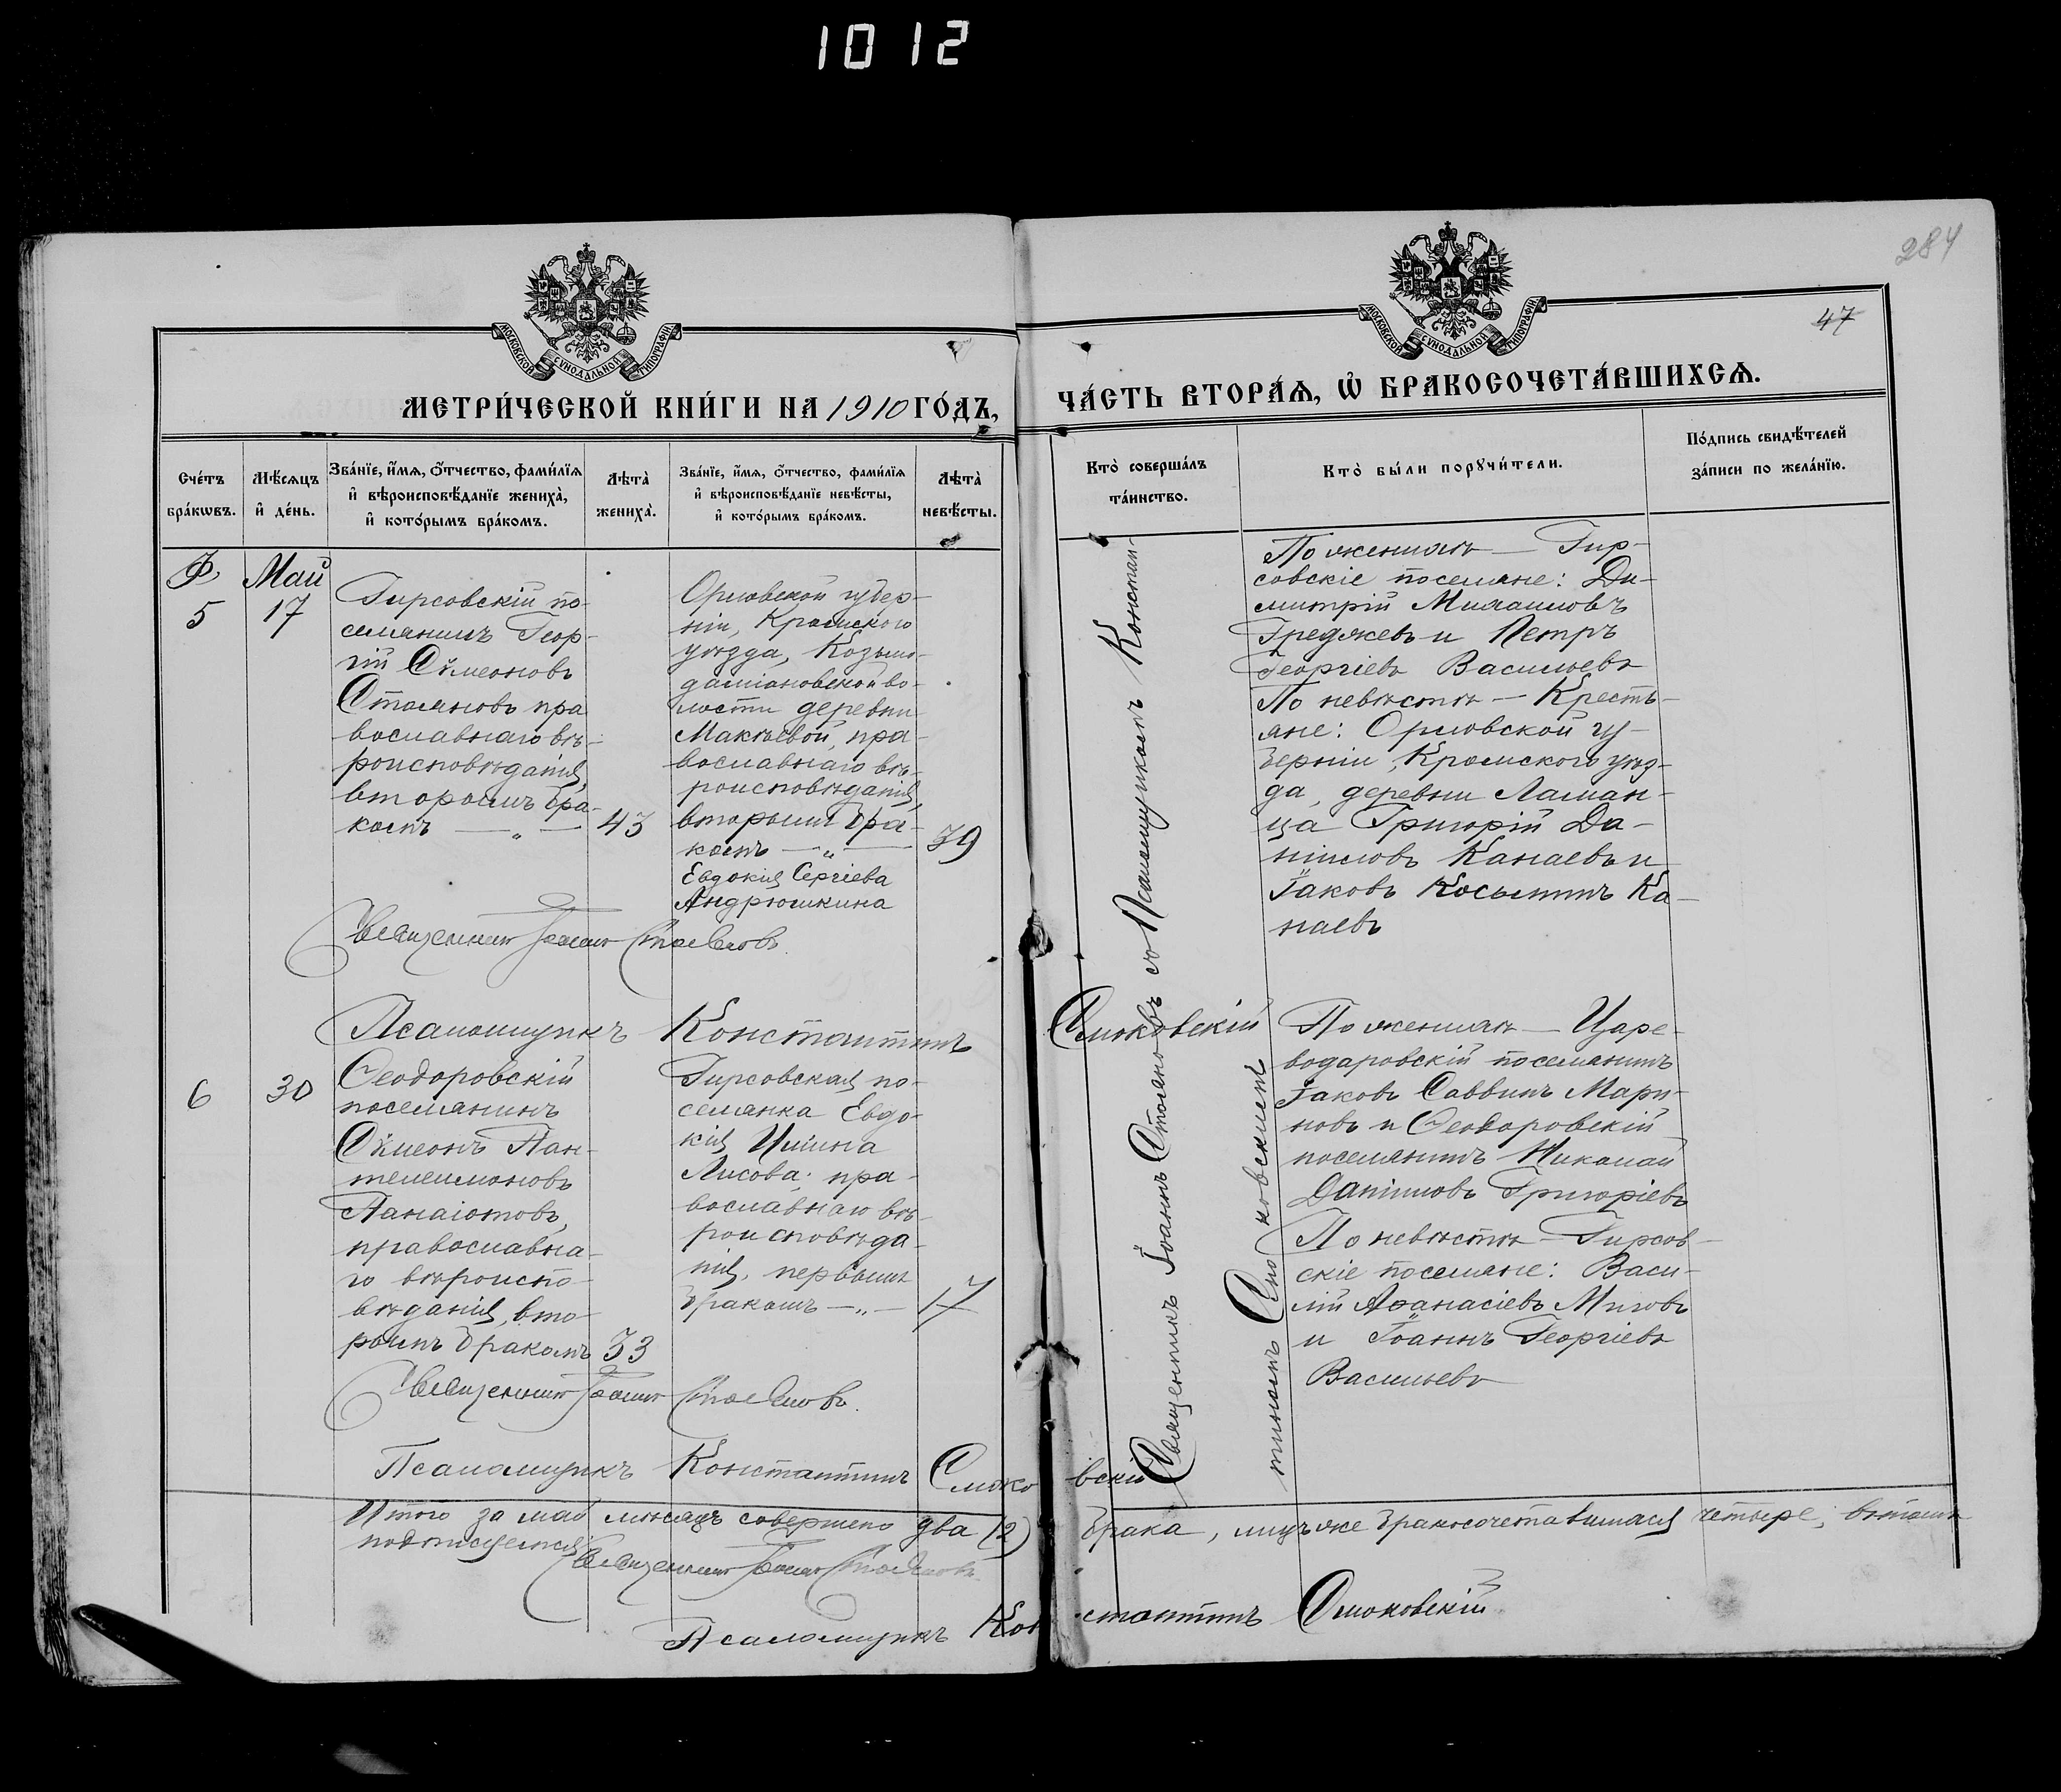 1012
284
47
МОСКОВСКОЙ СѴНОДАЛЬНОЙ ТИПОГРАФІИ
МОСКОВСКОЙ СѴНОДАЛЬНОЙ ТИПОГРАФІИ
МЕТРИ́ЧЕСКОЙ КНИ́ГИ НА 1910 ГО́ДЪ,
ЧА́СТЬ ВТОРА́Ѧ, Ѽ БРАКОСОЧЕТА́ВШИХСѦ.
Счéтъ
брáкѡвъ.
Мѣ́сяцъ
и҆ дéнь.
Звáнїе, и҆́мѧ, ѻ҆́тчество, фами́лїѧ
и҆ вѣроисповѣ́данїе женихà,
и҆ котóрымъ брáкомъ.
Лѣтà
женихà.
Звáнїе, и҆́мѧ, ѻ҆́тчество, фами́лїѧ
и҆ вѣроисповѣ́данїе невѣ́сты,
и҆ котóрымъ брáкомъ.
Лѣтà
невѣ́сты.
Ктò совершáлъ
тáинство.
Ктò бы́ли порꙋчи́тели.
Пóдпись свидѣ́телей
зáписи по желáнїю.
Май
5
17
Гирсовскій по-
селянинъ Геор-
гій Сѵмеоновъ
Стояновъ пра
вославнаго вѣ-
роисповѣданія,
вторымъ бра-
комъ — „ —
43
Орловской губер-
ніи, Кромского
уѣзда, Козьмо-
даміановской во-
лости деревни
Макѣевой, пра-
вославнаго вѣ-
роисповѣданія,
вторымъ бра-
комъ — „ —
Евдокія Сергіева
Андрюшкина
39
Священникъ Іоаннъ Стояновъ.
Псаломщикъ Константинъ Смоковскій
Священникъ Іоаннъ Стояновъ съ Псаломщикомъ Констан-
тиномъ Смоковскимъ
По женихѣ — Гир-
совскіе поселяне: Ди-
митрій Михаиловъ
Греджевъ и Петръ
Георгіевъ Васильевъ
По невѣстѣ — Кресть-
яне: Орловской гу-
берніи, Кромского уѣз-
да, деревни Ломан-
ца Григорій Да-
ніиловъ Канаевъ и
Іаковъ Косьминъ Ка-
наевъ
6
30
Ѳеодоровскій
поселянинъ
Сѵмеонъ Пан-
телеимоновъ
Панаіотовъ,
православна-
го вѣроиспо-
вѣданія, вто-
рымъ бракомъ
33
Гирсовская по-
селянка Евдо-
кія Иліина
Лисова, пра-
вославнаго вѣ-
роисповѣда-
нія, первымъ
бракомъ — „ —
17
По женихѣ — Царе-
водаровскій поселянинъ
Іаковъ Саввинъ Мари-
новъ и Ѳеодоровскій
поселянинъ Николай
Даніиловъ Григоріевъ
По невѣстѣ — Гирсов-
скіе поселяне: Васи-
лій Аѳанасіевъ Митовъ
и Іоаннъ Георгіевъ
Васильевъ
Священникъ Іоаннъ Стояновъ.
Псаломщикъ Константинъ Смоковскій
Итого за май мѣсяцъ совершено два (2) брака, лицъ же бракосочетавшихся четыре, въ томъ
подписуемся:
Священникъ Іоаннъ Стояновъ
Псаломщикъ Константинъ Смоковскій